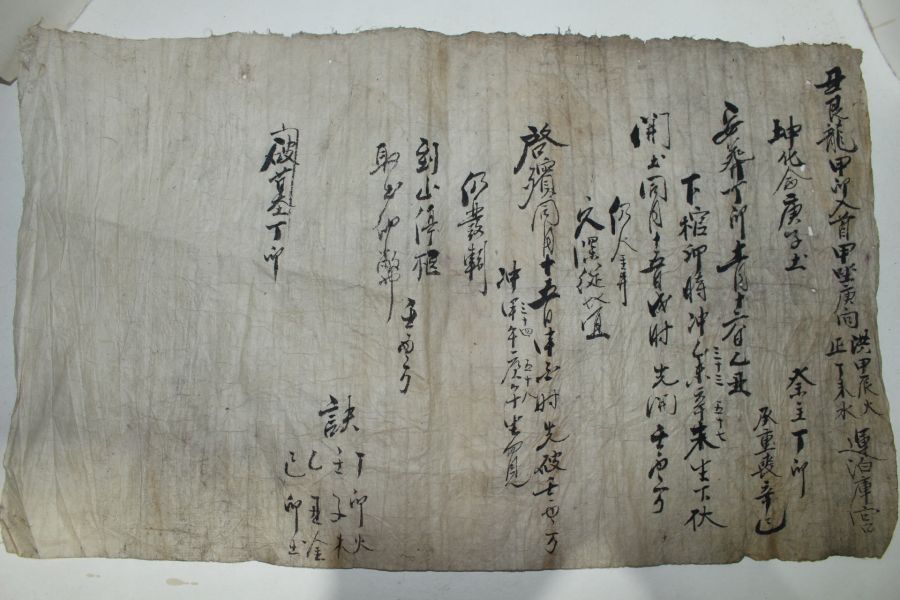 丑艮龍甲卯入首甲坐庚向 洪甲辰火 正丁未水 運泊庫宮
坤化命庚子土 祭主丁卯
承重喪辛巳
安葬丁卯十二月十六日乙丑
下棺卯時冲年辛未生下伏 三十三 五十七
開土同月十五日戌時先開壬方
仍金井
穴深從宜
啓殯同月十五日時先破壬方
仍發靷
冲甲午庚午生 三十四 五十八
到山停柩
取土 壬方
破墓丁卯
訣
丁卯火
壬子木
乙丑金
己卯土